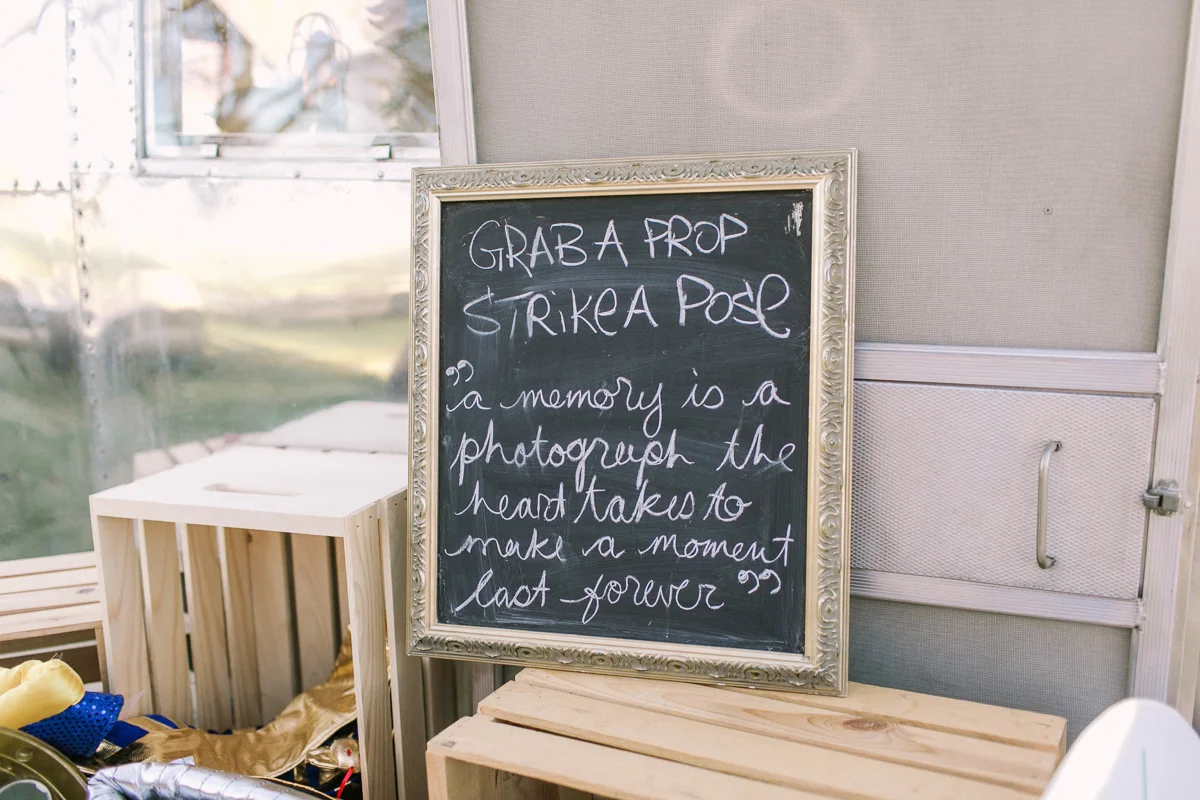 GRAB A PROP
STRIKE A POSE
”a memory is a
photograph the
heart takes to
make a moment
last forever”